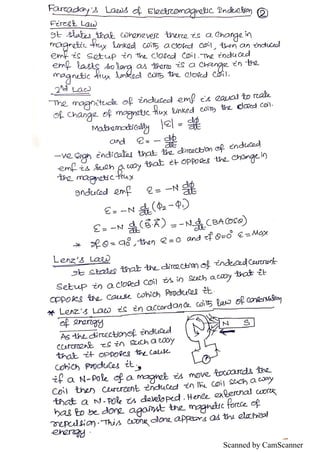 Faraday's Laws of Electromagnetic Induction ②
First Law
It states that whenever there is a change in
magnetic flux linked with a closed coil, then an induced
emf is setup in the closed coil. The induced
emf lasts so long as there is a change in the
magnetic flux linked with the closed coil.
2nd Law
The magnitude of induced emf is equal to rate
of change of magnetic flux linked with the closed coil.
Mathematically |ε| = dφ/dt
and ε = - dφ/dt
-ve sign indicates that the direction of induced
emf is such a way that it opposes the change in
the magnetic flux
Induced emf ε = -N dφ/dt
ε = -N d/dt (φ₂ - φ₁)
ε = -N d/dt (B⃗.A⃗) = -N d/dt (BA cosθ)
→ If θ = 90°, then ε = 0 and if θ = 0° ε = Max
Lenz's Law
It states that the direction of induced current
setup in a closed coil is in such a way that it
opposes the cause which produces it.
* Lenz's Law is in accordance with law of conservation
of energy
As the direction of induced
current is in such a way
that it opposes the cause
which produces it.
N S
if a N-Pole of a magnet is move towards the
coil then current induced in the coil such a way
that a N-Pole is developed. Hence external work
has to be done against the magnetic force of
repulsion. This work done appears as the electrical
energy.
Scanned by CamScanner